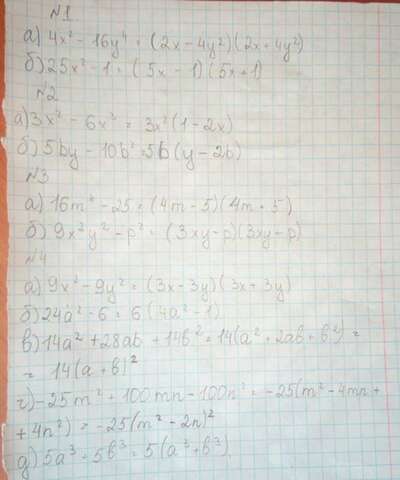 №1
а) 4x² - 16y⁴ = (2x - 4y²)(2x + 4y²)
б) 25x² - 1 = (5x - 1)(5x + 1)
№2
а) 3x² - 6x³ = 3x²(1 - 2x)
б) 5by - 10b² = 5b(y - 2b)
№3
а) 16m² - 25 = (4m - 5)(4m + 5)
б) 9x²y² - p² = (3xy - p)(3xy - p)
№4
а) 9x² - 9y² = (3x - 3y)(3x + 3y)
б) 24a² - 6 = 6(4a² - 1)
в) 14a² + 28ab + 14b² = 14(a² + 2ab + b²) =
= 14(a + b)²
г) - 25m² + 100mn - 100n² = -25(m² - 4mn +
+ 4n²) = -25(m² - 2n)²
д) 5a³ + 5b³ = 5(a³ + b³)